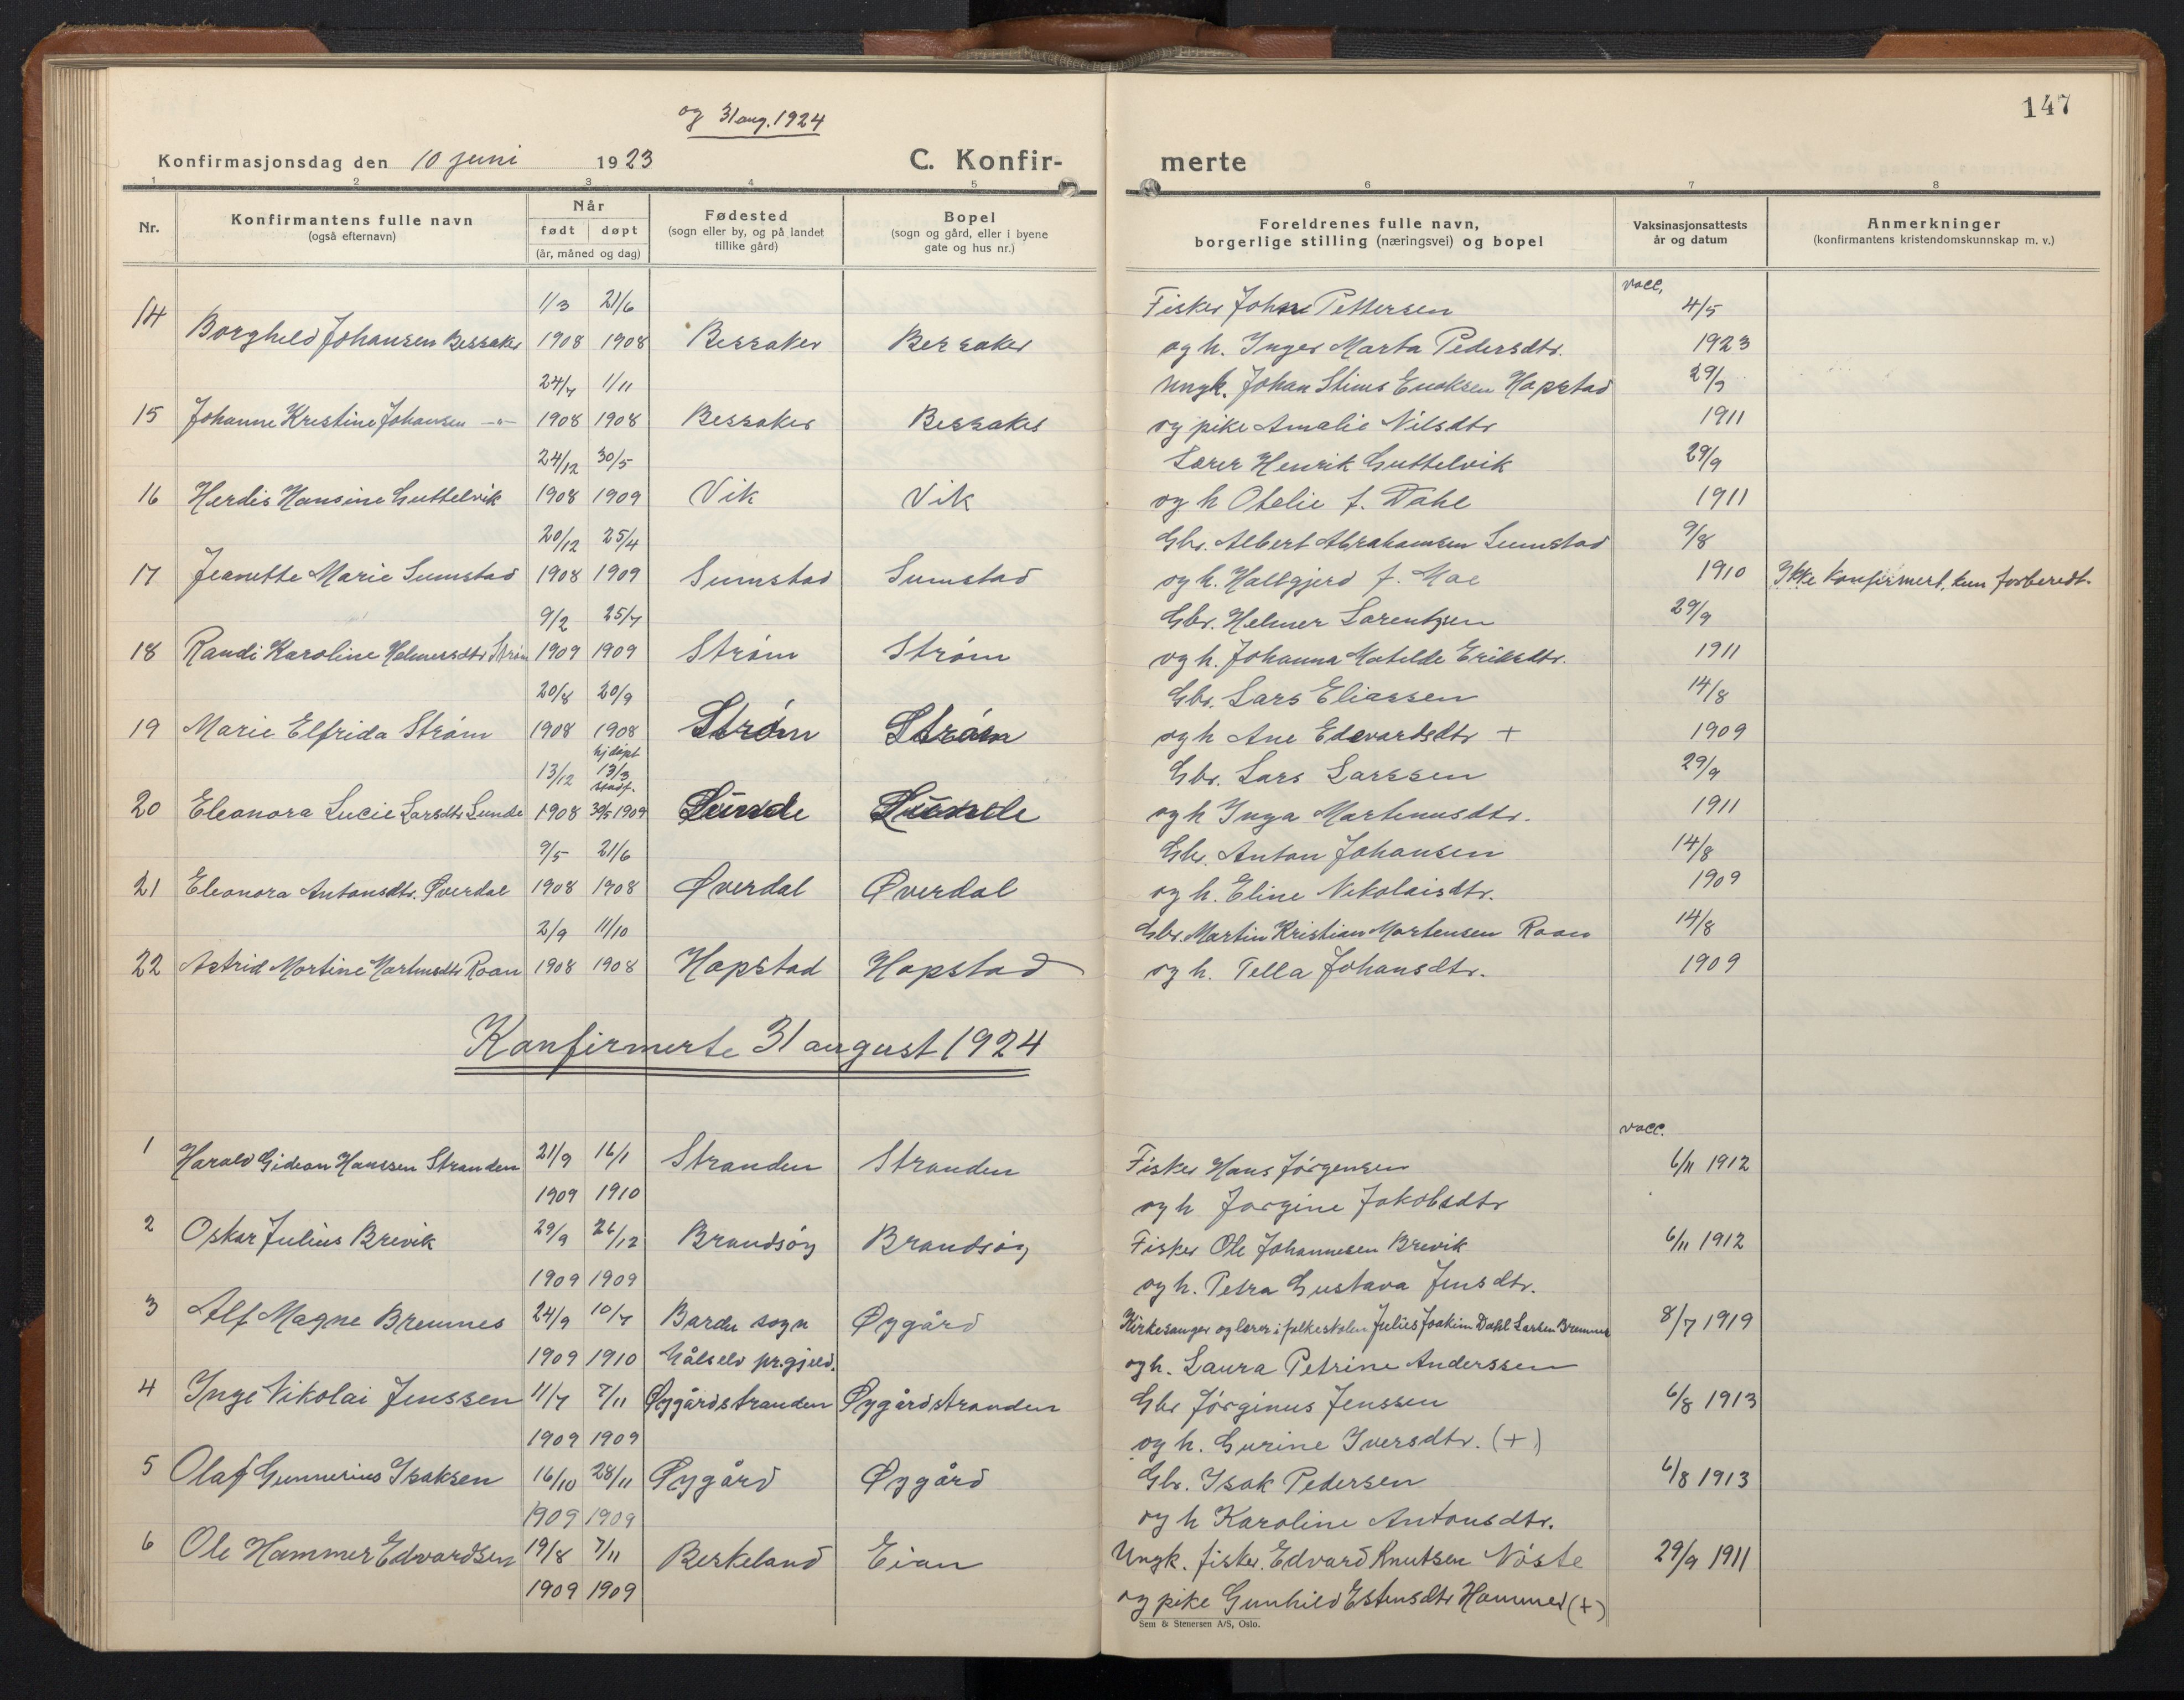 147
og 31 aug. 1924
Konfirmasjonsdag den 10 juni 1923 C. Konfir- merte
1 2 3 4 5 6 7 8
Nr. Konfirmantens fulle navn (også efternavn) Når født døpt (år, måned og dag) Fødested (sogn eller by, og på landet tillike gård) Bopel (sogn og gård, eller i byene gate og hus nr.) Foreldrenes fulle navn, borgerlige stilling (næringsvei) og bopel Vaksinasjonsattests år og datum Anmerkninger (konfirmantens kristendomskunnskap m. v.)
vacc.
14 1/3 21/6 Fisker Johan Pettersen 4/5
Borghild Johansen Bessaker 1908 1908 Bessaker Bessaker og h. Inger Marta Pedersdtr. 1923
24/7 1/11 Ungk. Johan Enoksen Hopstad 29/9
15 Johanne Kristine Johansen -"- 1908 1908 Bessaker Bessaker og pike Amalie Nilsdtr 1911
24/12 30/5 Lærer Henrik Guttelvik 29/9
16 Herdis Hansine Guttelvik 1908 1909 Vik Vik og h Otelie f. Dahl 1911
20/12 25/4 Gbr. Albert Abrahamsen Sumstad 9/8
17 Jeanette Marie Sumstad 1908 1909 Sumstad Sumstad og h. Hallgjerd f. Moe 1910 Ikke konfirmert, kun forberedt.
9/2 25/7 Gbr. Helmer Lorentzen 29/9
18 Randi Karoline Helmersdtr Strøm 1909 1909 Strøm Strøm og h. Johanna Matilde Eriksdtr. 1911
20/8 20/9 Gbr. Lars Eliassen 14/8
19 Marie Elfrida Strøm 1908 1908 Strøm Strøm og h Ane Edevardsdtr + 1909
13/12 hj.døpt 13/3 stadf. Gbr. Lars Larssen 29/9
20 Eleonora Lucie Larsdtr Sunde 1908 30/5 1909 Sunde Sunde og h Inga Martinusdtr. 1911
9/5 21/6 Gbr. Anton Johansen 14/8
21 Eleonora Antonsdtr. Øverdal 1908 1908 Øverdal Øverdal og h. Eline Nikolaisdtr. 1909
2/9 11/10 Gbr. Martin Kristian Mortensen Roan 14/8
22 Astrid Martine Martinsdtr Roan 1908 1908 Hopstad Hopstad og h. Pella Johansdtr. 1909
Konfirmerte 31 august 1924
vacc.
1 Harald Gideon Hanssen Stranden 21/9 16/1 Stranden Stranden Fisker Hans Jørgensen 6/11 1912
1909 1910 og h Jorgine Jakobsdtr
2 Oskar Julius Brevik 29/9 26/12 Brandsøy Brandsøy Fisker Ole Johannesen Brevik 6/11 1912
1909 1909 og h. Petra Gustava Jensdtr.
3 Alf Magne Bremnes 24/9 10/7 Bardu sogn Øygård Kirkesanger og lærer i folkeskolen Julius Joakim Dahl Larsen Bremnes 8/7 1919
1909 1910 Målselv pr.gjeld. og h. Laura Petrine Anderssen
4 Inge Nikolai Jenssen 11/7 7/11 Øygårdstranden Øygårdstranden Gbr Jørginus Jenssen 6/8 1913
1909 1909 og h. Gurine Iversdtr. (+)
5 Olaf Gunnerius Isaksen 16/10 28/11 Øygård Øygård Gbr. Isak Pedersen 6/8 1913
1909 1909 og h Karoline Antonsdtr.
6 Ole Hammer Edvardsen 19/8 7/11 Berkeland Eian Ungk. fisker Edvard Knutsen Nøste 29/9 1911
1909 1909 og pike Gunhild Estensdtr Hammer (+)
Sem & Stenersen A/S, Oslo.